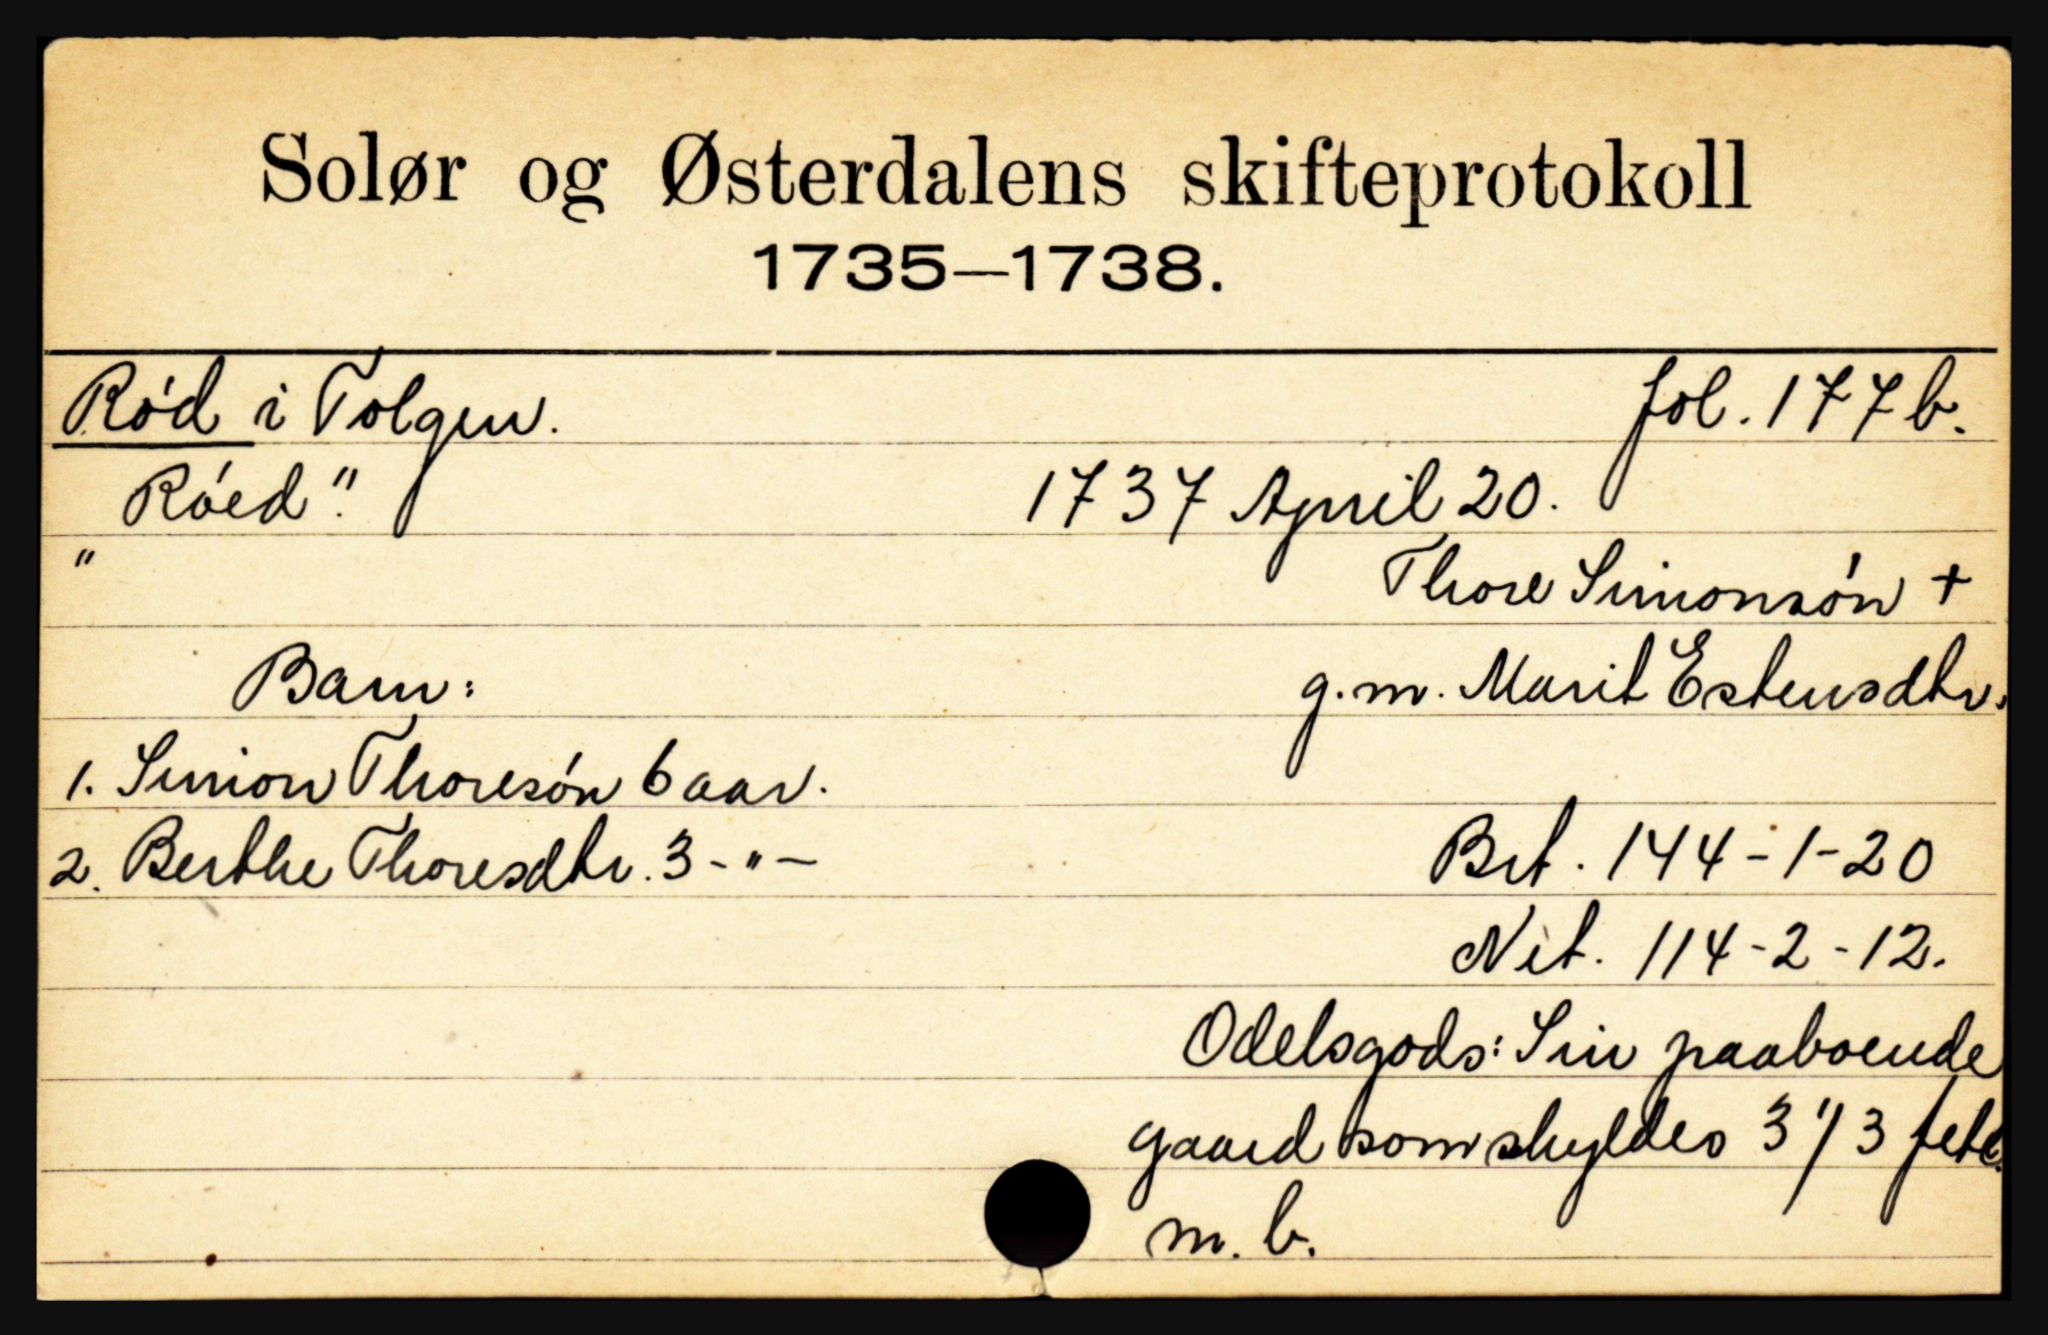 Solør og Østerdalens skifteprotokoll
1735—1738.
Ród i Tolgen. fol. 177 b.
"Róed". 1737 April 20.
Thore Simonsón +
Barn: g.m. Marit Estensdtr.
1. Simon Thoresón 6 aar.
2. Berthe Thoresdtr. 3 - " - Brt. 144 - 1 - 20
Net. 114 - 2 - 12.
Odelsgods: Sin paaboende
gaard som skyldes 3 1/3 fetl.
m. b.